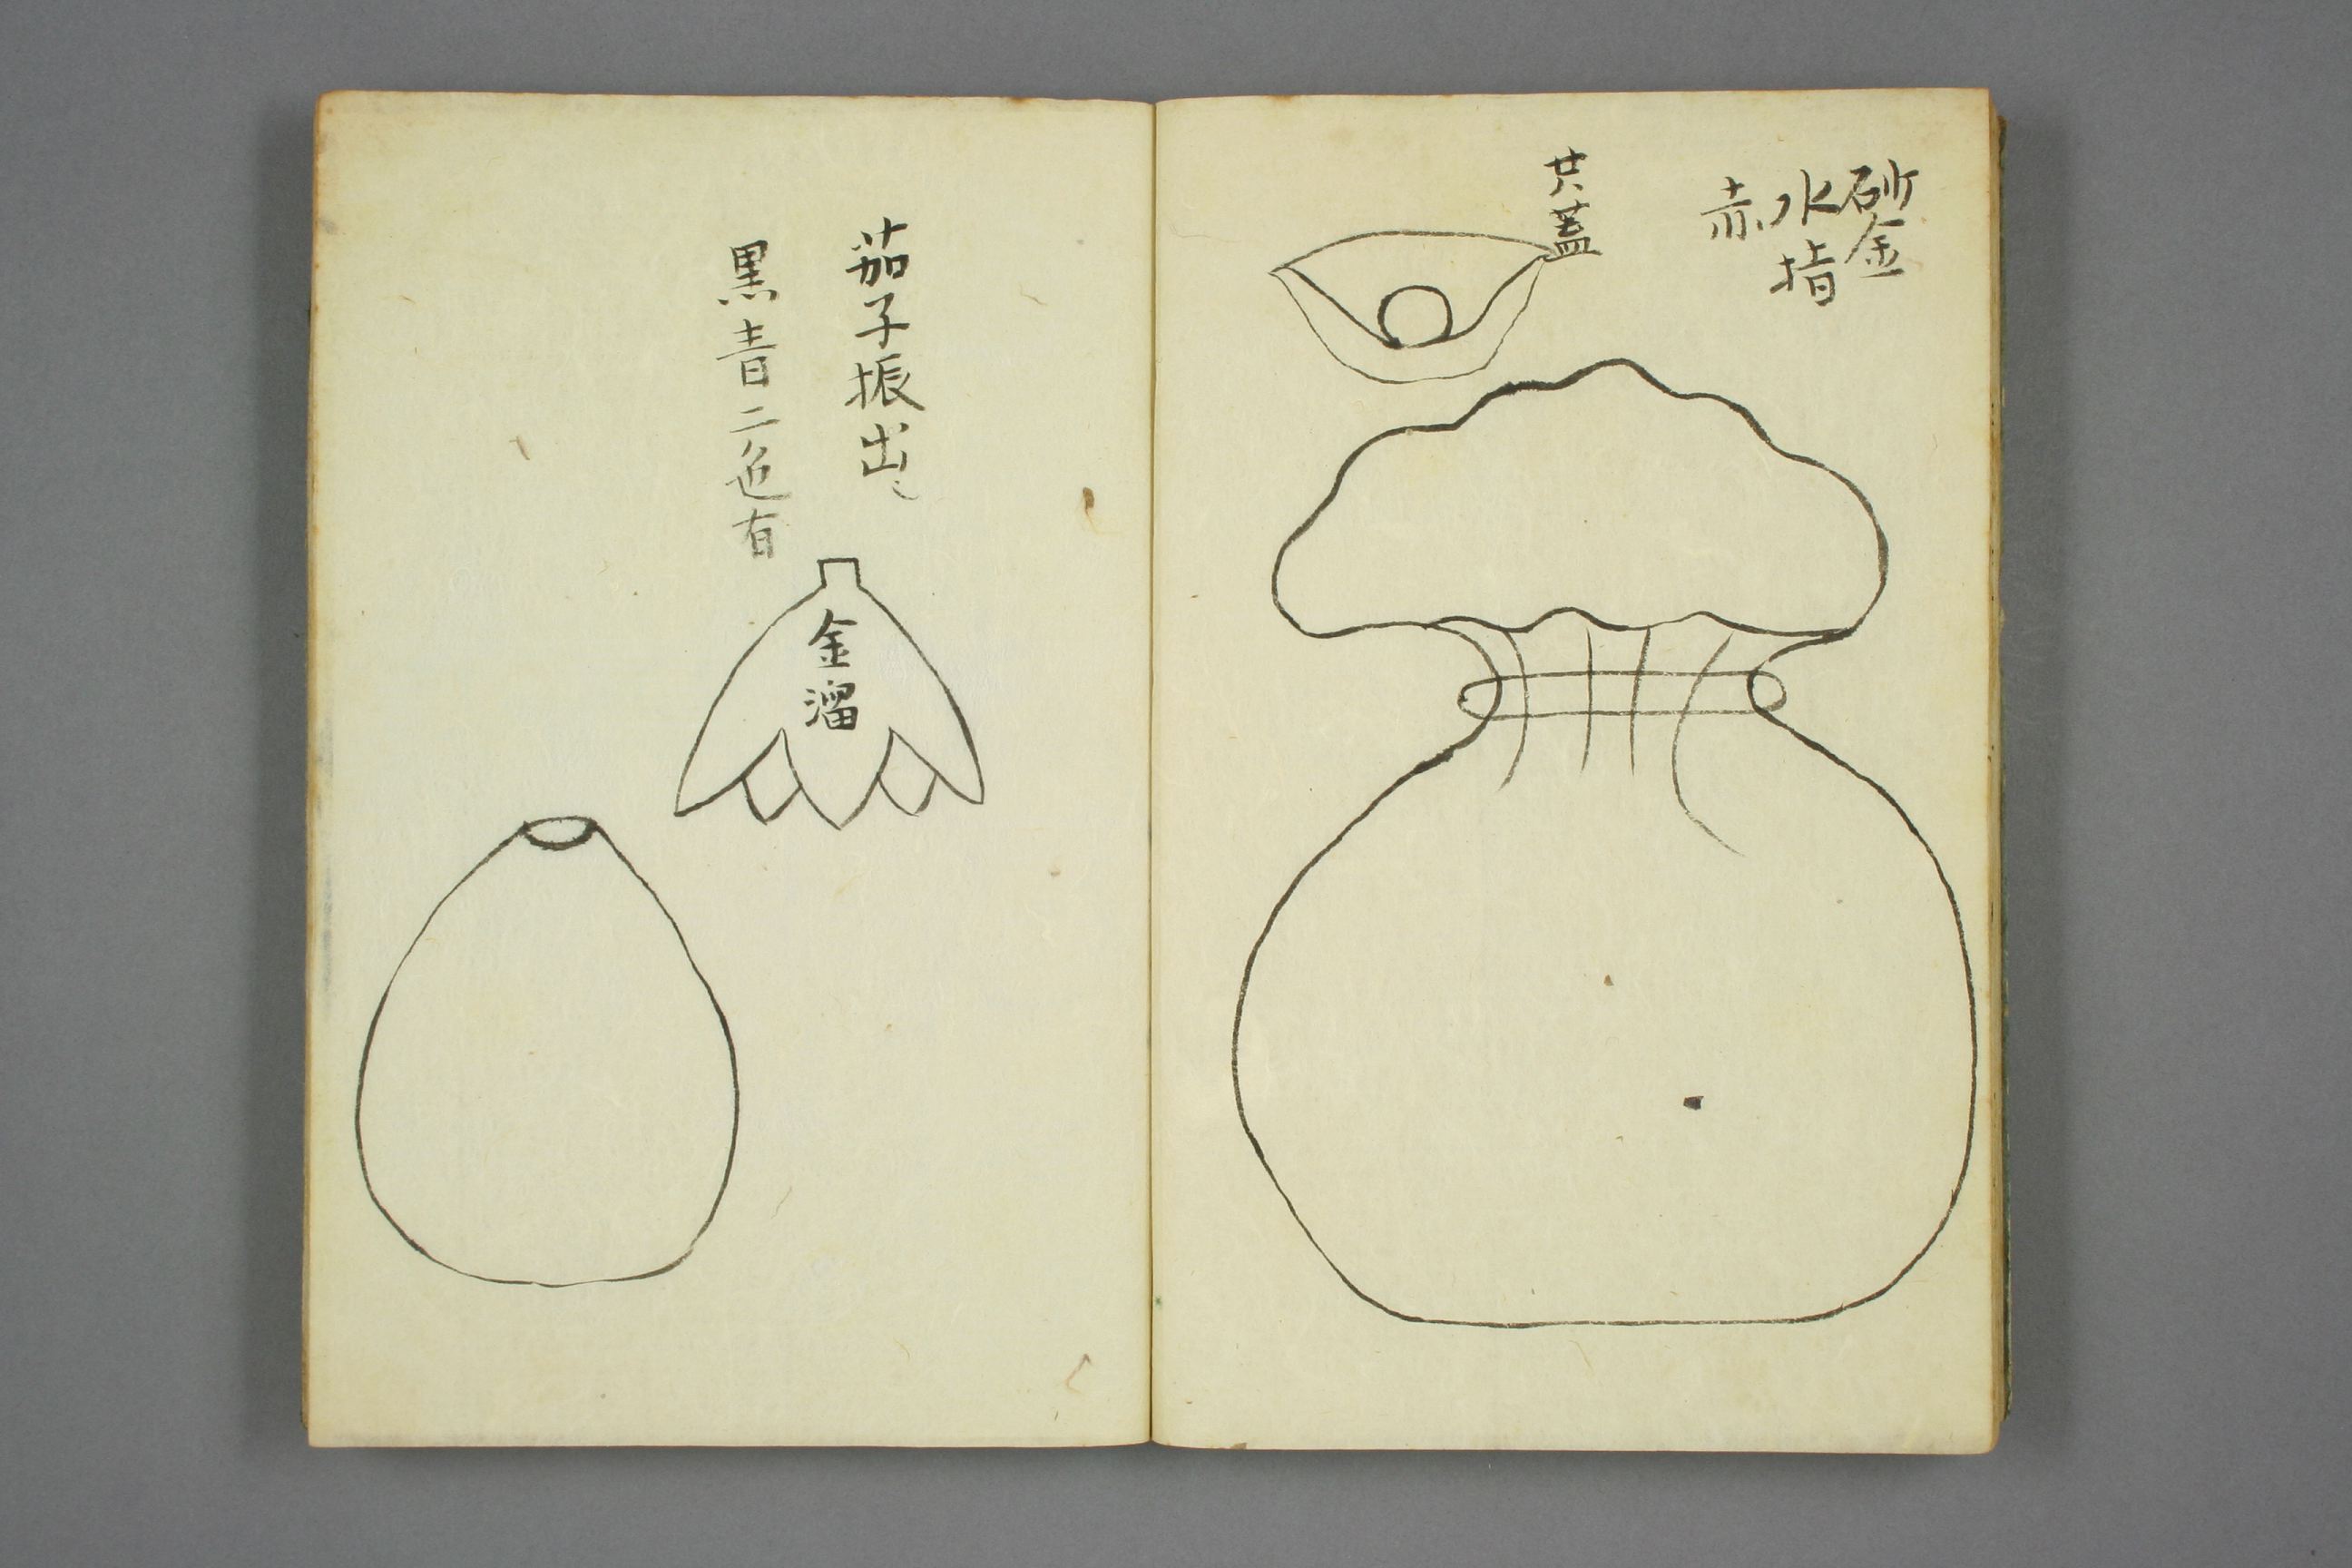 砂金
水指
赤
共蓋
茄子振出し
黒青二色有
金溜